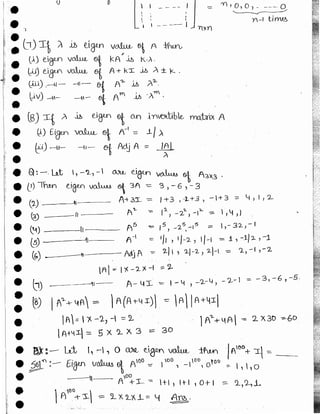 1 1 - - - - 1
= n, 0, 0, - - - 0
1 - - - - 1 n×n
n-1 times
(7) If λ is eigen value of A then
(i) eigen value of kA is k.λ.
(ii) eigen value of A+kI is λ±k.
(iii) —"— —"— of A² is λ².
(iv) —"— —"— of Aᵐ is λᵐ.
(8) If λ is eigen of an invertible matrix A
(i) Eigen value of A⁻¹ = 1/λ
(ii) —"— —"— of Adj A = |A|/λ
Q:- Let 1, -2, -1 are eigen values of A₃ₓ₃.
(1) Then eigen values of 3A = 3, -6, -3
(2) —"— A+3I = 1+3, -2+3, -1+3 = 4, 1, 2
(3) —"— A² = 1², -2², -1² = 1, 4, 1
(4) —"— A⁵ = 1⁵, -2⁵, -1⁵ = 1, -32, -1
(5) —"— A⁻¹ = 1/1, 1/-2, 1/-1 = 1, -1/2, -1
(6) —"— Adj A = 2/1, 2/-2, 2/-1 = 2, -1, -2
|A| = 1 x -2 x -1 = 2
(7) —"— A-4I = 1-4, -2-4, -1 = -3, -6, -5.
(8) |A²+4A| = |A(A+4I)| = |A| |A+4I|
|A| = 1 x -2, -1 = 2
|A²+4A| = 2 x 30 = 60
|A+4I| = 5 x 2 x 3 = 30
Ex:- Let 1, -1, 0 are eigen value then |A¹⁰⁰+I| = ___
Solⁿ:- Eigen values of A¹⁰⁰ = 1¹⁰⁰, -1¹⁰⁰, 0¹⁰⁰ = 1, 1, 0
—"— A¹⁰⁰+I = 1+1, 1+1, 0+1 = 2, 2, 1
|A¹⁰⁰+I| = 2 x 2 x 1 = 4 Ans.